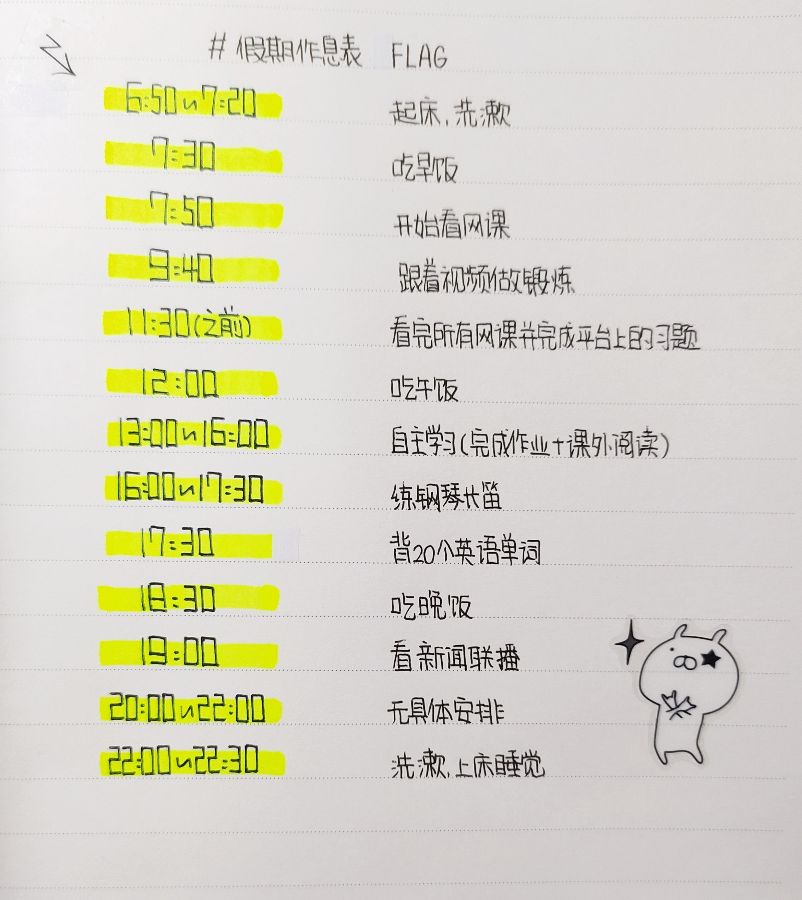 # 假期作息表 FLAG
6:50~7:20 起床,洗漱
7:30 吃早饭
7:50 开始看网课
9:40 跟着视频做锻炼
11:30(之前) 看完所有网课并完成平台上的习题
12:00 吃午饭
13:00~16:00 自主学习(完成作业+课外阅读)
16:00~17:30 练钢琴长笛
17:30 背20个英语单词
18:30 吃晚饭
19:00 看新闻联播
20:00~22:00 无具体安排
22:00~22:30 洗漱,上床睡觉